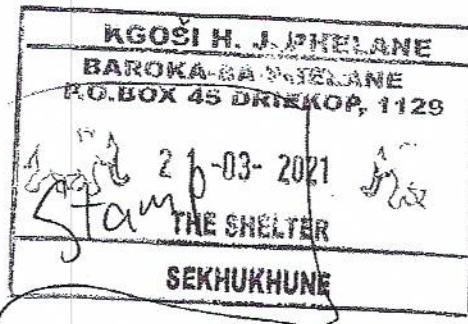 KGOŠI H. J. PHELANE
BAROKA-BA-
P.O.BOX 45 DRIEKOP, 1129
-03- 2021
Stamp
THE SHELTER
SEKHUKHUNE